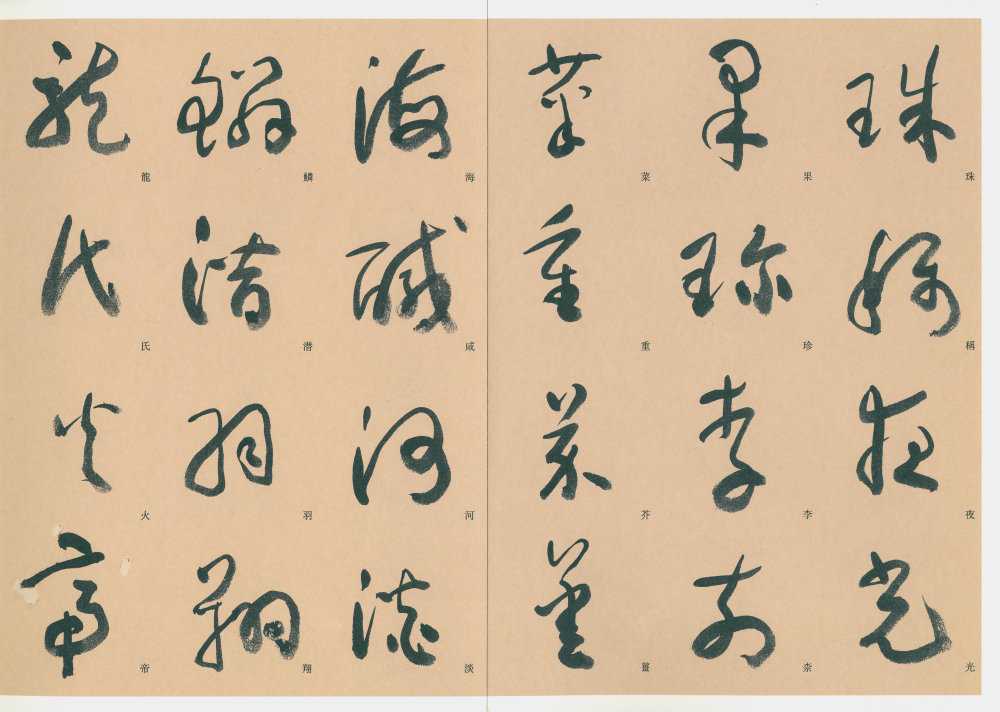 珠稱夜光
果珍李柰
菜重芥薑
海咸河淡
鱗潜羽翔
龍氏火帝